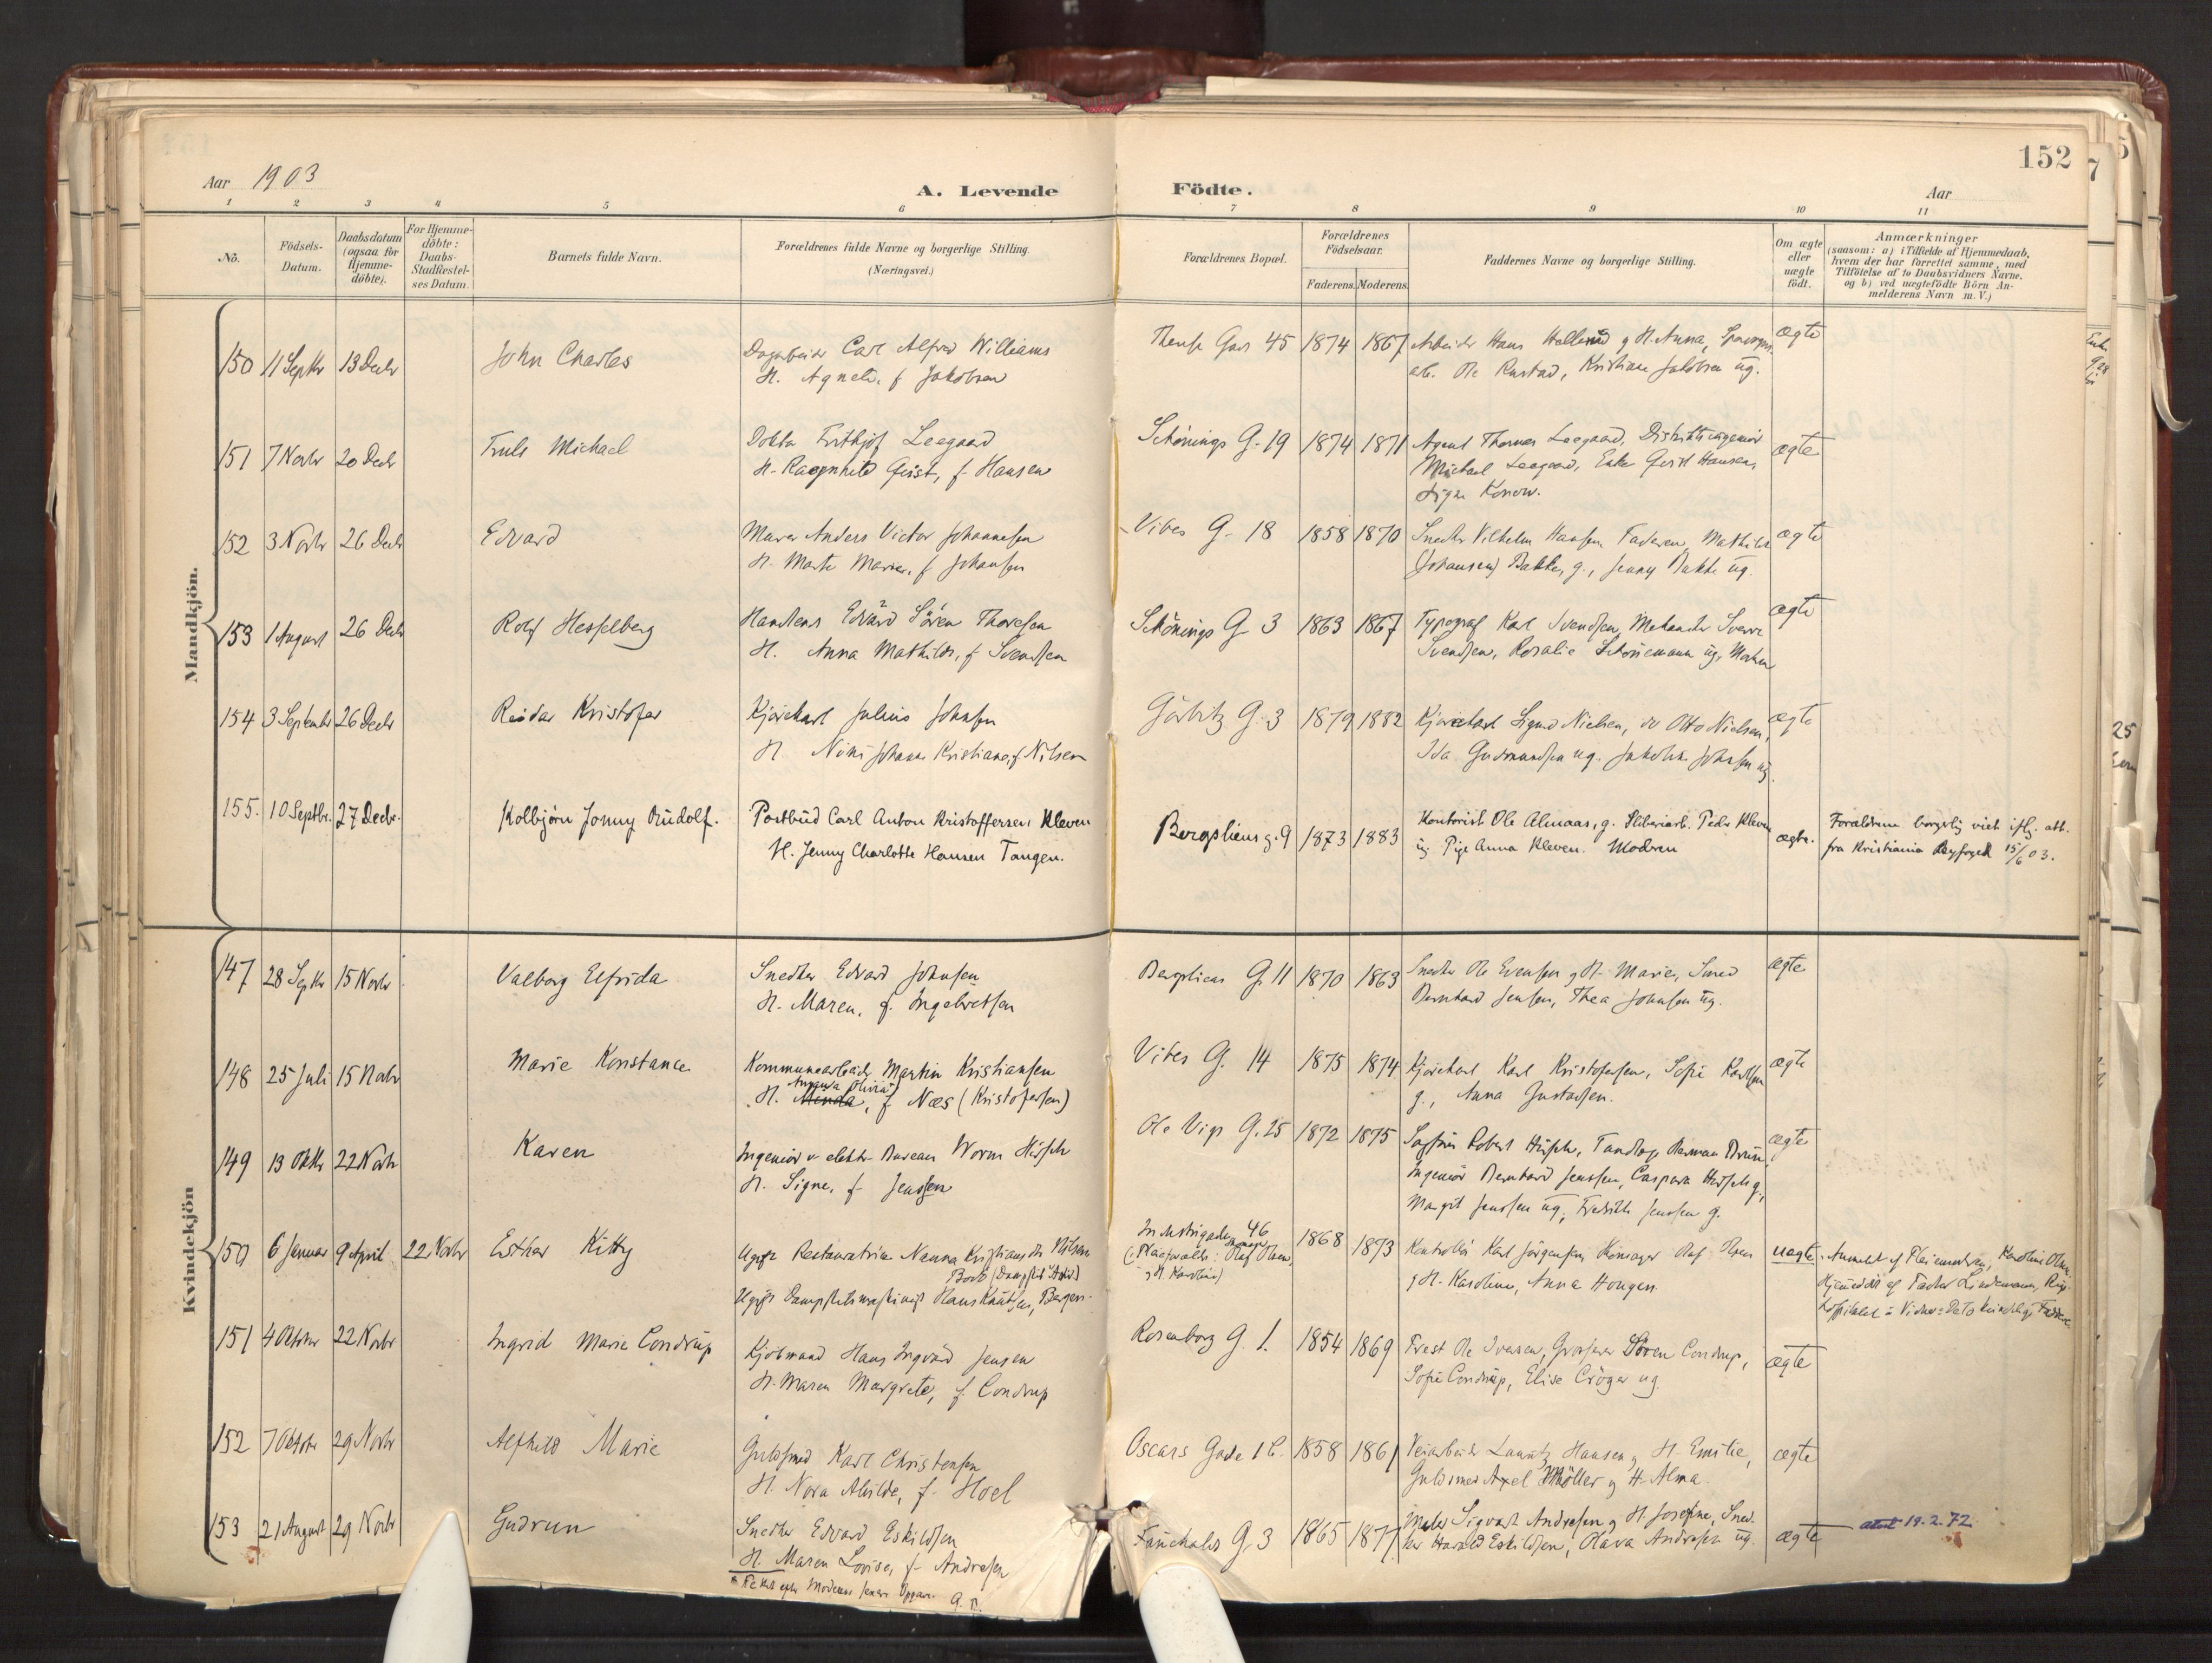 152
Aar 1903
A. Levende
Födte.
Aar
1 2 3 4 5 6 7 8 9 10 11
No.
Födsels-
Datum.
Daabsdatum
(ogsaa for
Hjemme-
döbte).
For Hjemme-
döbte:
Daabs-
Stadfæstel-
ses Datum.
Barnets fulde Navn.
Forældrenes fulde Navne og borgerlige Stilling.
(Næringsvei.)
Forældrenes Bopæl.
Forældrenes
Födselsaar.
Faderens. Moderens.
Faddernes Navne og borgerlige Stilling.
Om ægte
eller
uægte
födt.
Anmærkninger
(saasom: a) i Tilfælde af Hjemmedaab,
hvem der har forrettet samme, med
Tilföielse af to Daabsvidners Navne,
og b) ved uægtefödte Börn An-
melderens Navn m. V.)
Mandkjön.
150 11 Septbr 13 Decbr John Charles
Carl Alfred Williams
H. Agnete, f Jakobsen
45 1874 1867
Arbeider Hans g H. Anna,
Ole Rustad, Kristiane Jakobsen ug.
ægte
151 7 Novbr 20 Decbr Truls Michael
Doktor Frithjof Leegaard
H. Ragnhild f. Hansen
Schönings G. 19 1874 1871
Agent Thomas Leegaard, Distriktsingeniör
Michael Leegaard, Hansen,
Konow.
ægte
152 3 Novbr 26 Decbr Edvard
Murer Anders Victor Johannesen
H. Marte Marie, f Johansen
Vibes G. 18 1858 1870
Snedker Vilhelm Hansen, Faderen, Mathilde
(Johansen) Bakke, g., Jenny Bakke ug.
ægte
153 1 August 26 Decbr Rolf Hesselberg
Edvard Sören Thoresen
H. Anna Mathilde, f Svendsen
Schönings G 3 1863 1867
Typograf Karl Svendsen, Sverre
Svendsen, Rosalie ug, Moderen
ægte
154 3 September 26 Decbr Reidar Kristofer
Kjörekarl Julius Johnsen
H. Johanne Kristiane, f. Nilsen
Görbitz G. 3 1879 1882
Kjörekarl Nielsen, do Otto Nielsen,
Ida Gudmundsen ug. Johnsen ug.
ægte
155. 10 Septbr. 27 Decbr. Kolbjörn Jonny Rudolf.
Postbud Carl Anton Kristoffersen Kleven
H. Jenny Charlotte Hansen Tangen.
Bergsliens g. 9 1873 1883
Kontorist Ole Almaas, g. Peder Kleven
ug Pige Anna Kleven. Moderen
ægte.
Forældrene borgerlig viet iflg. att.
fra Kristiania Byfoged 15/6 03.
Kvindekjön
147 28 Septbr 15 Novbr Valborg Elfrida
Snedker Edvard Johnsen
H. Maren, f. Ingebretsen
Bergsliens G 11 1870 1863
Snedker Ole Evensen g H. Marie, Smed
Bernhard Jensen, Thea Johnsen ug.
ægte
148 25 Juli 15 Novbr Marie Konstance
Kommunearbeider Martin Kristiansen
H. , f Næs (Kristofersen)
Vibes G. 14 1875 1874
Kjörekarl Karl Kristofersen, Sofie Karlsen
g., Anna Gustavsen.
ægte
149 13 Oktbr 22 Novbr Karen
Ingeniör v. elektr. Bureau Worm Hirsch
H. Signe, f. Jenssen
Ole Vigs G. 25 1872 1875
Robert Hirsch,
Ingeniör Bernhard Jenssen, Caspara Hirsch g.,
Margit Jenssen ug, Fredrikke Jenssen g.
ægte
150 6 Januar 9 April 22 Novbr Esther Kitty
Ugift Restauratrice Nanna Nilsen
Ugift Hans Knutsen, Bergen.
Industrigaden 46
Olaf Olsen,
g H. Karoline)
1868 1873
Kontrollör Karl Jörgensen, Olaf Olsen
g H. Karoline, Anna Hongen.
uægte.
Anmeldt af Pleiemoderen, Karoline Olsen
Hjemmedöbt af Lindemann,
151 4 Oktober 22 Novbr Ingrid Marie Condrup
Kjöbmand Hans Ingvard Jensen
H. Maren Margrete, f. Condrup
Rosenborg G. 1. 1854 1869
Ole Iversen, Grosserer Sören Condrup,
Sofie Condrup, Elise Cröger ug.
ægte
152 7 Oktober 29 Novbr Alfhild Marie
Guldsmed Karl Christensen
H. Nora Alvilde, f. Hoel
Oscars Gade 1 1858 1861
Veiarbeider Lauritz Hansen g H. Emilie,
Guldsmed Axel Möller g H. Alma.
ægte
153 21 August 29 Novbr Gudrun
Snedker Edvard Eskildsen
H. Maren Lovise, f. Andresen
Fauchalds G 3 1865 1877
Maler Sigvart Andresen g H. Josefine, Sned-
ker Harald Eskildsen, Olava Andresen ug.
ægte
attest 19.2.72